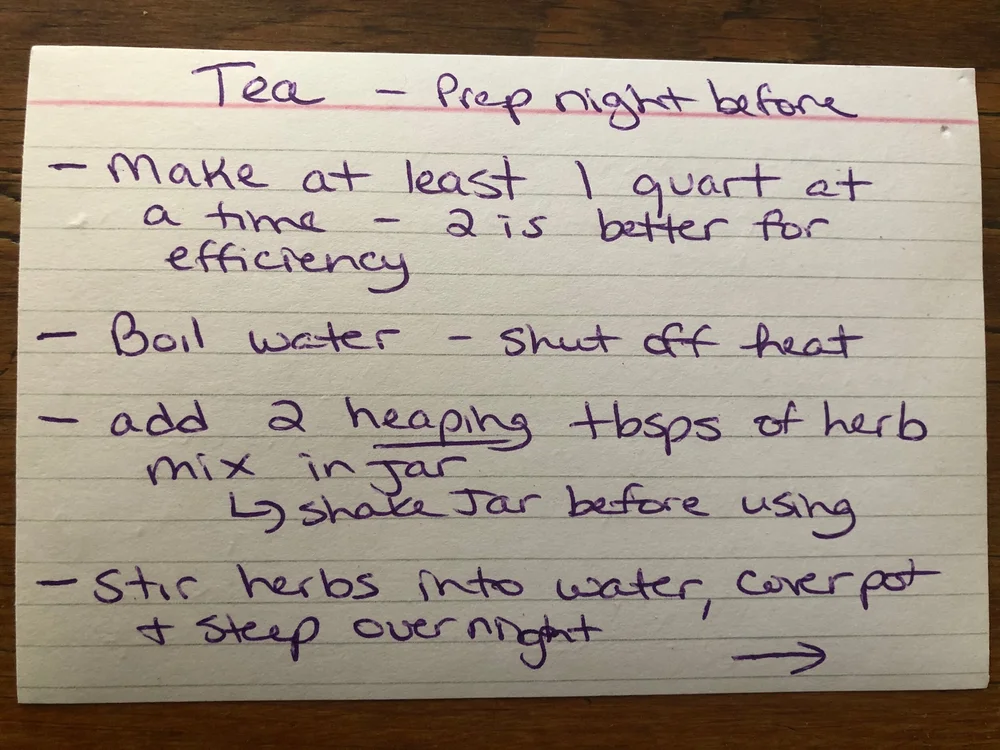 Tea - Prep night before
- Make at least 1 quart at
a time - 2 is better for
efficiency
- Boil water - shut off heat
- add 2 heaping tbsps of herb
mix in jar
↳ shake Jar before using
- Stir herbs into water, cover pot
+ steep overnight
→